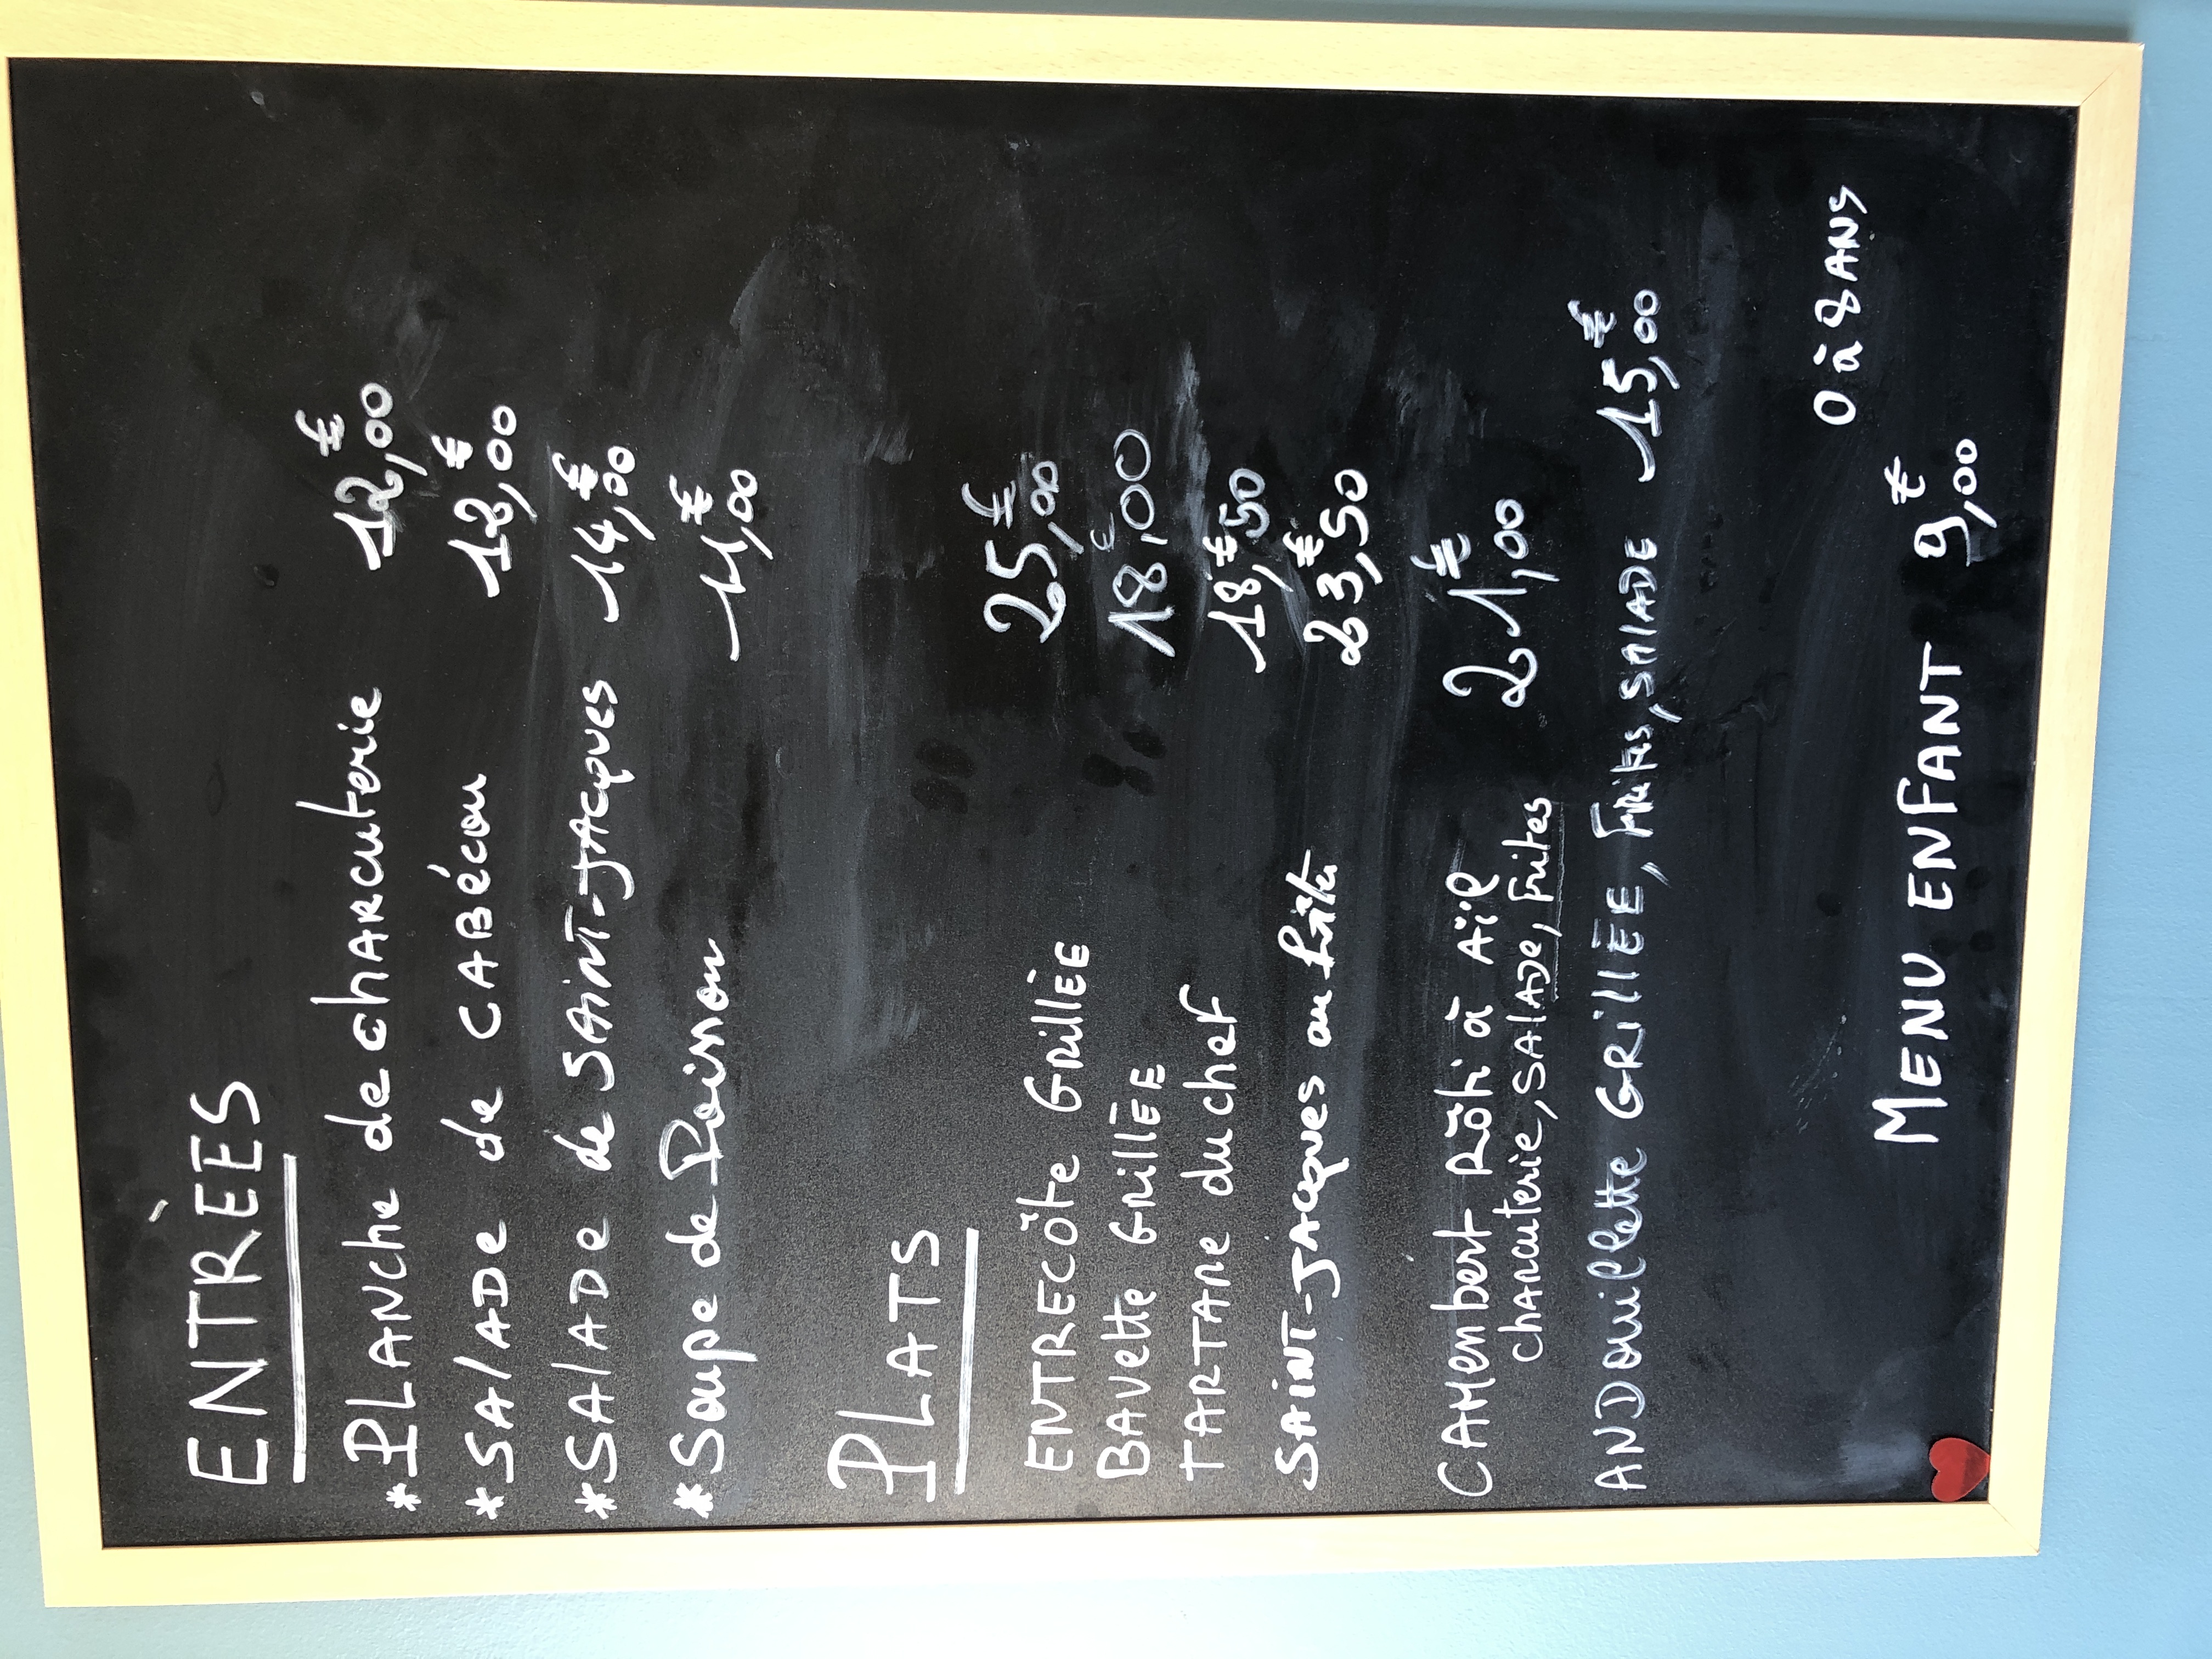 ENTRÈES
* PLANche de chARcuterie 12,00€
* SAlADe de CABécou 12,00€
* SAlADe de SAiNT-JAcques 14,00€
* Soupe de Poisson 11,00€
PLATS
ENTRECÔTe GRillÈE 25,00€
BAVette GRillÈE 18,00€
TARTARE du chef 18,50€
SAiNT-JAcques ou 23,50€
CAMembert Rôti à Aïl 21,00€
chARcuterie, SAlADe, Frites
ANDouillette GRillÉE, Frites, SAlADE 15,00€
0 à 8 ANS
MENU ENFANT 9,00€